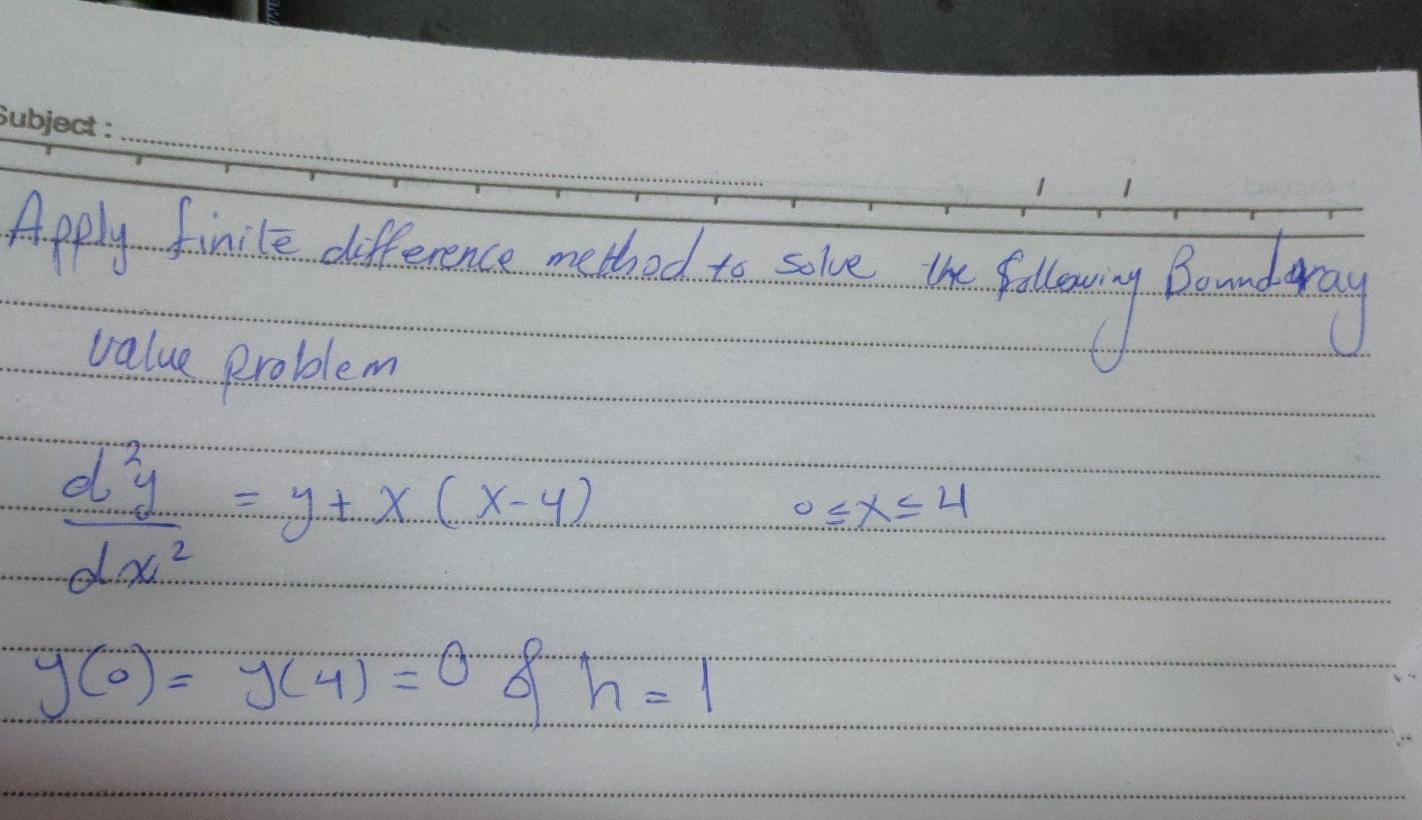 Subject :
Apply finite difference method to solve the following Boundaray
value problem
d²y/dx² = y + x (x-4) 0≤x≤4
y(0) = y(4) = 0 & h = 1